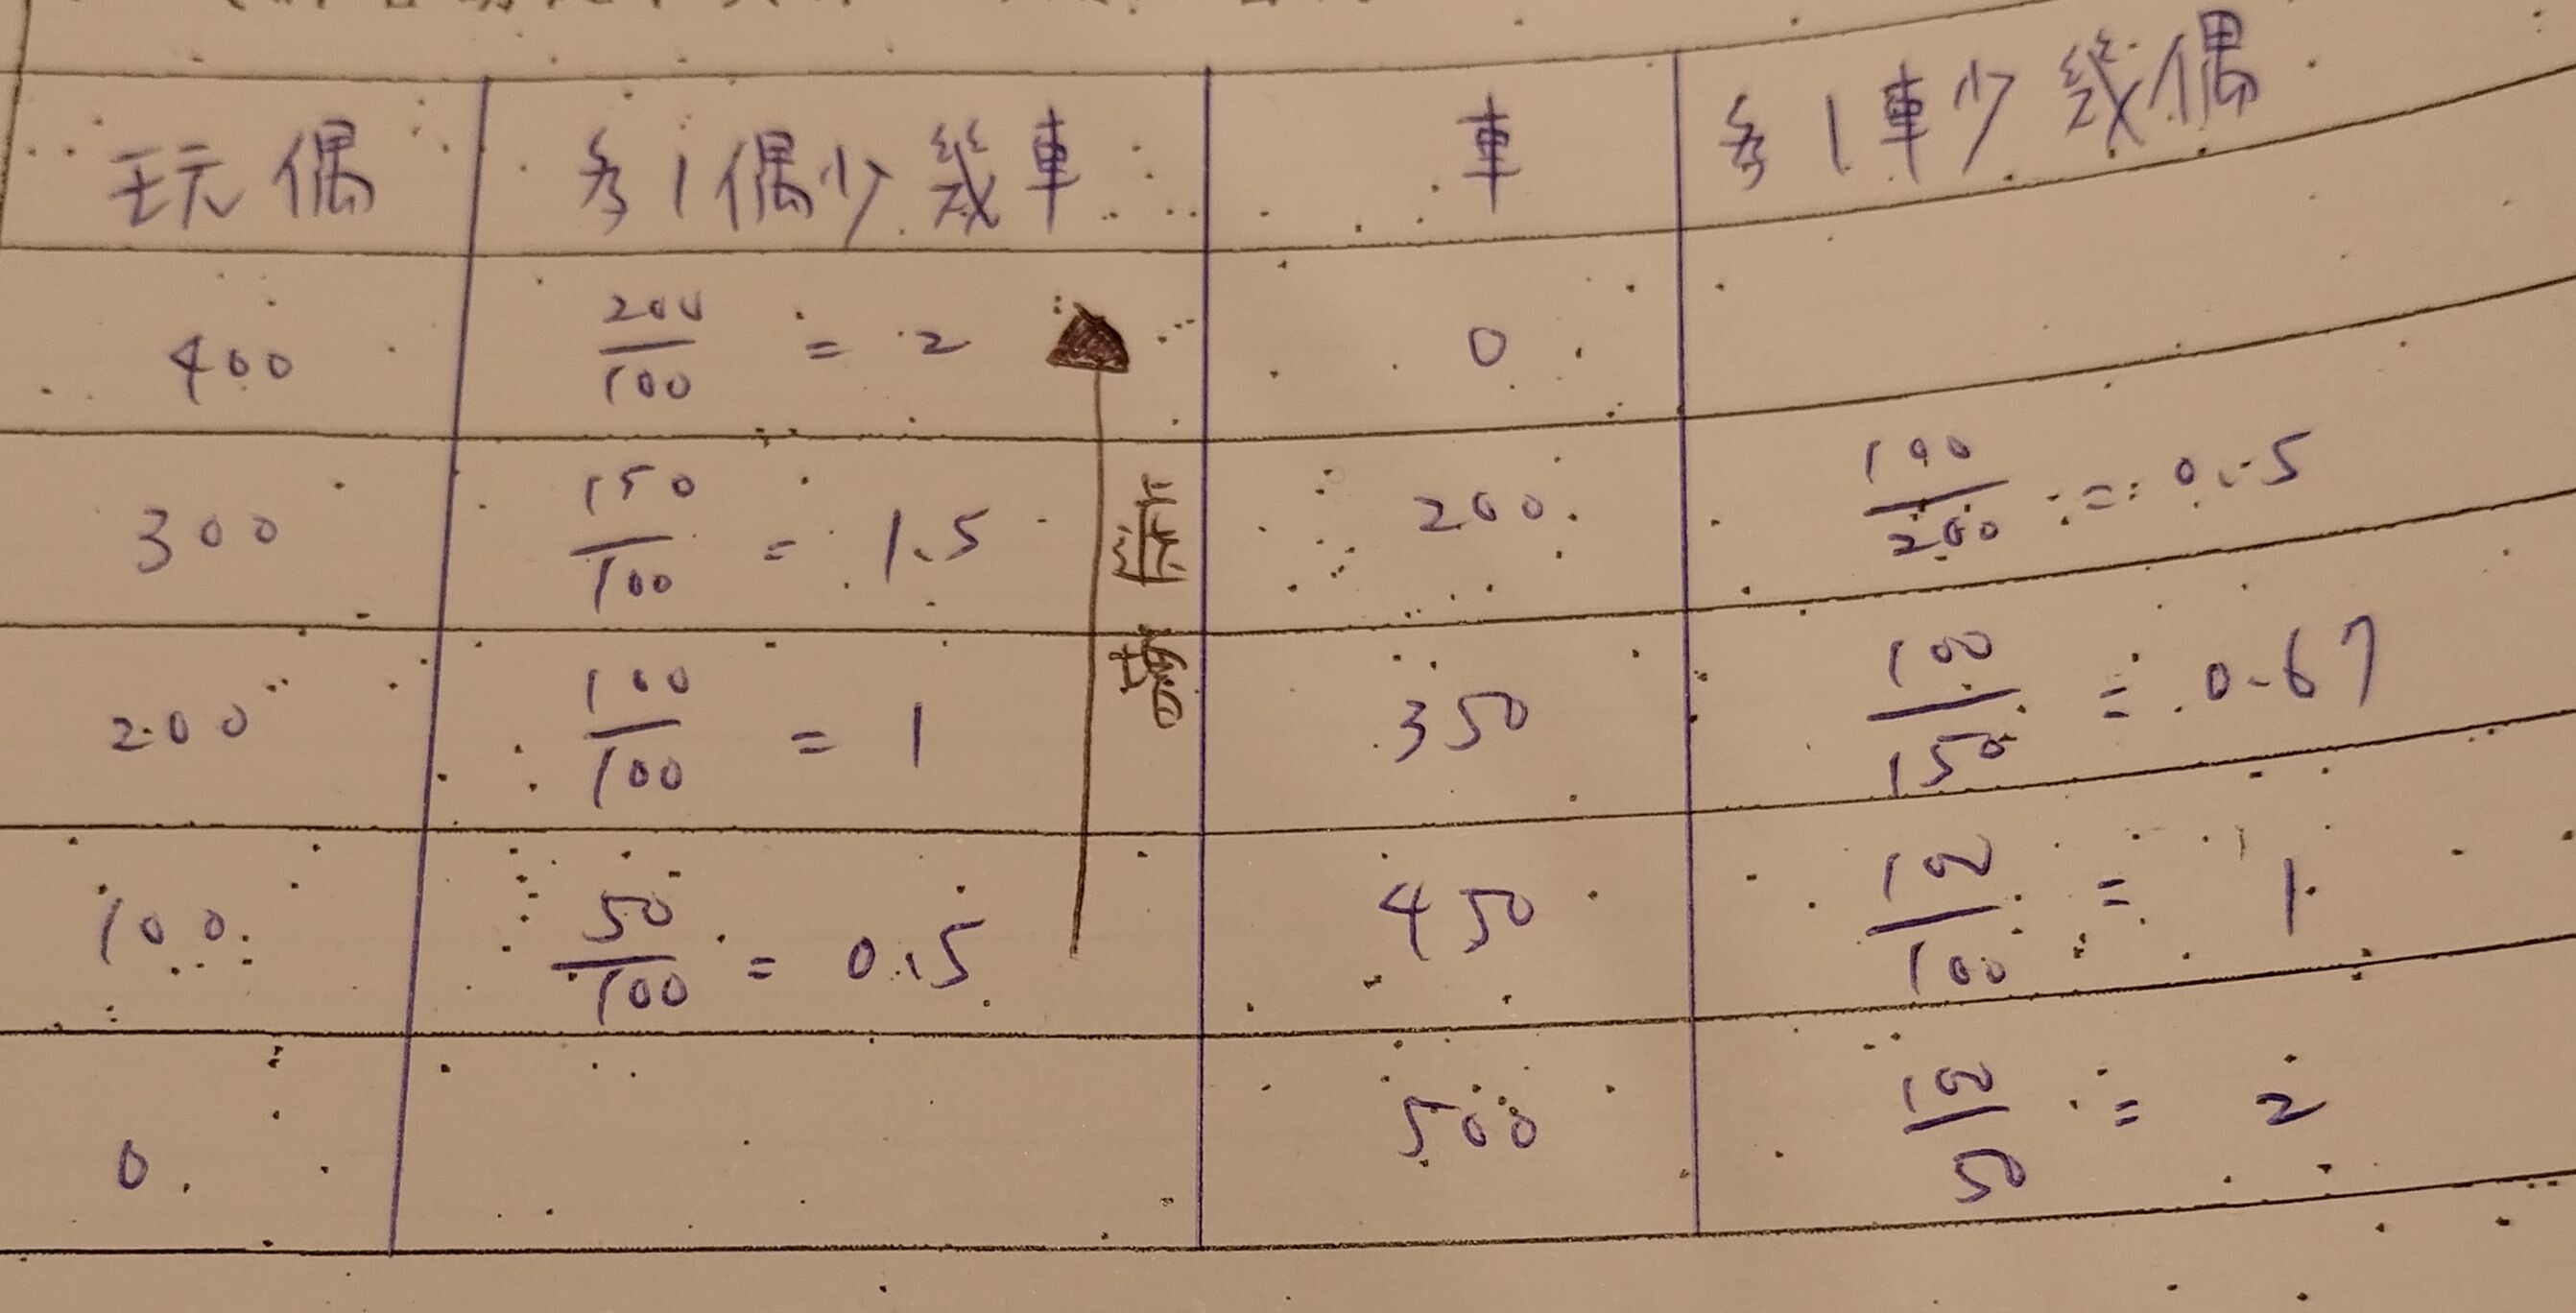 玩偶 多1偶少幾車 車 多1車少幾偶
400 200/100 = 2 0
300 150/100 = 1.5 200 100/200 = 0.5
200 100/100 = 1 350 100/150 = 0.67
100 50/100 = 0.5 450 100/100 = 1
0 500 100/50 = 2
遞增